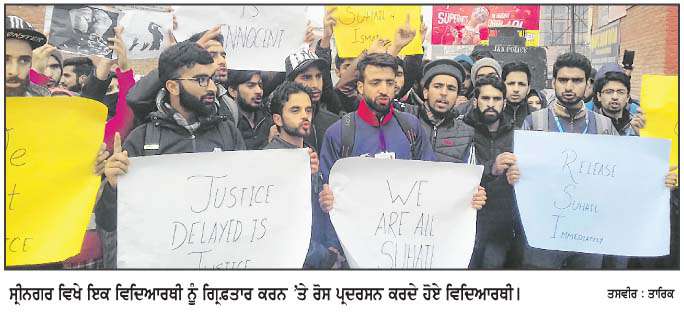 IS
INNOCENT
SUHAIL
ISMAIL
SUPER
J&K POLICE
JUSTICE
DELAYED IS
JUSTICE
WE
ARE All
SUHAIL
RELEASE
SUHAIL
IMMEDIATELY
ਸ੍ਰੀਨਗਰ ਵਿਖੇ ਇਕ ਵਿਦਿਆਰਥੀ ਨੂੰ ਗ੍ਰਿਫ਼ਤਾਰ ਕਰਨ 'ਤੇ ਰੋਸ ਪ੍ਰਦਰਸਨ ਕਰਦੇ ਹੋਏ ਵਿਦਿਆਰਥੀ।
ਤਸਵੀਰ : ਤਾਰਿਕ